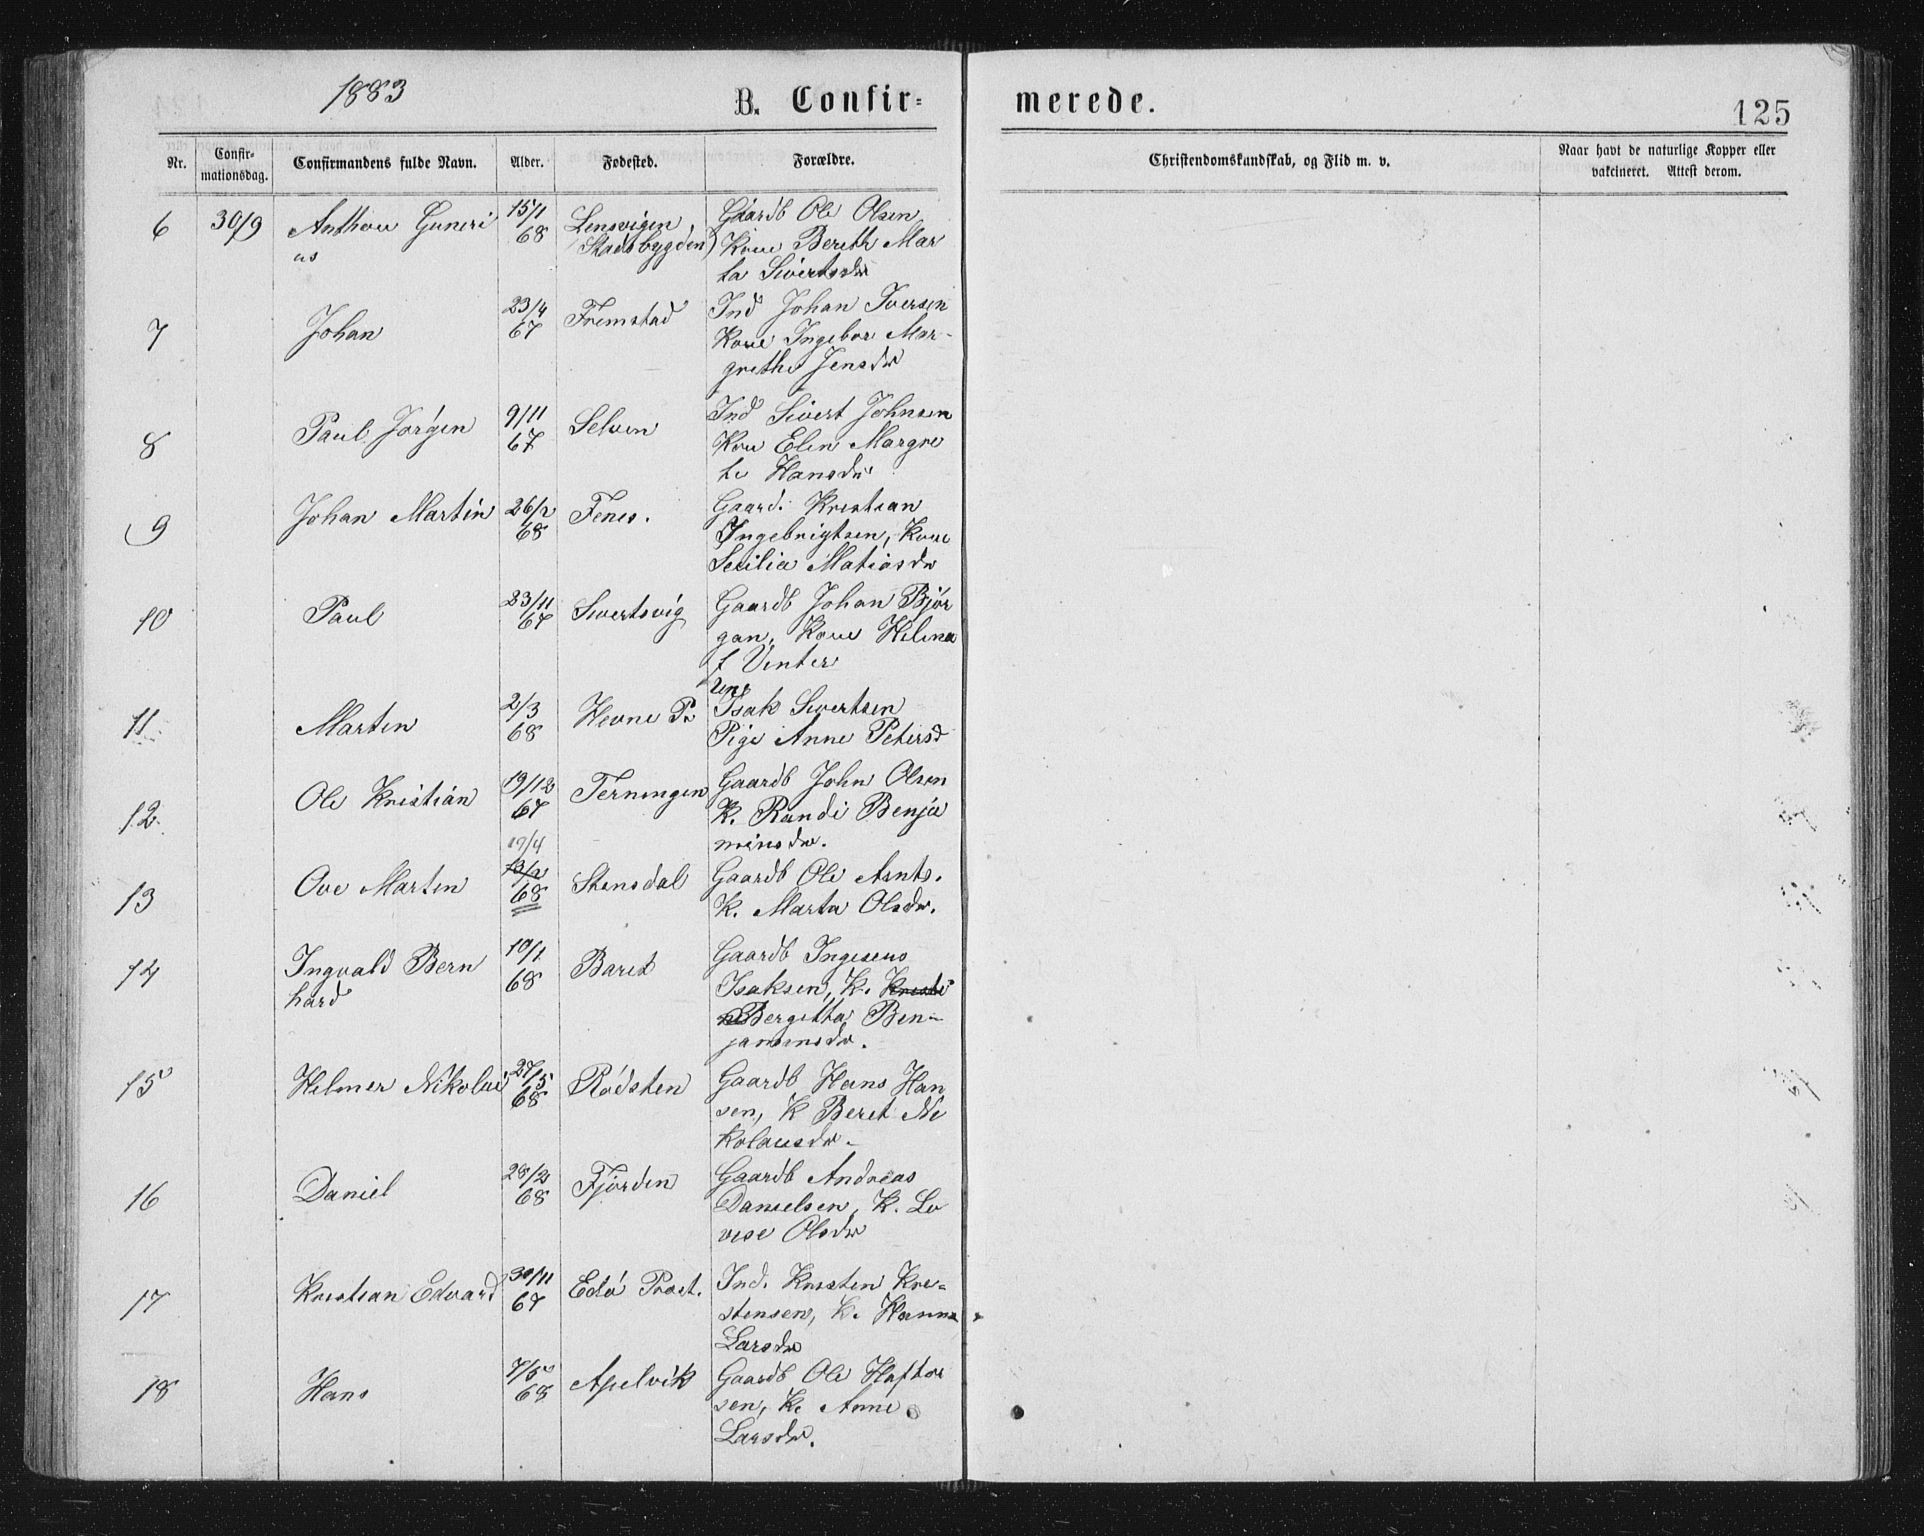 1883
B. Confir=
merede.
125
Nr.
Confir-
mationsdag.
Confirmandens fulde Navn.
Alder.
Fødested.
Forældre.
Christendomskundskab, og Flid m. v.
Naar havt de naturlige Kopper eller
vakcineret. Attest derom.
6 30/9 Anthon Guneri
us
15/1
68
Lensvigen
(Stadsbygden)
Gaardb Ole Olsen
Kone Bereth Mar
ta Sivertsdr
7 Johan
23/4
67
Fremstad
Ind Johan Iversen
Kone Ingebor Mar-
grethe Jensdr
8 Paul Jørgen
9/11
67
Selven
Ind Sivert Johnsen
Kone Elen Margre
te Hansdr
9 Johan Martin
26/2
68
Fenes.
Gaard. Kristian
Ingebrigtsen, Kone
Secilia Matiasdr
10 Paul
23/11
67
Sivertsvig
Gaardb Johan Bjør
gan, Kone Helena
f Vinter
11 Martin
2/3
68
Hevne P.
Isak Sivertsen
Pige Anne Petersd
12 Ole Kristian
19/12
67
Terningen
Gaardb John Olsen
K. Randi Benja
minsdr.
13 Ove Martin
19/4
13/2
68
Stensdal
Gaardb Ole Arnts.
K. Marta Olsdr.
14 Ingvald Bern
hard
10/1
68
Barst
Gaardb Ingeseus
Isaksen, K. Kristi
ne Bergitta Ben-
jaminsdr.
15 Helmer Nikolai
27/5
68
Rødsten
Gaardb Hans Han
sen, K Beret Ni
kolausdr.
16 Daniel
28/2
68
Fjorden
Gaardb Andreas
Danielsen, K. Lo
vise Olsdr
17 Kristian Edvard
30/11
67
Edø Præst.
Ind. Kristen Kri-
stensen, K. Hanna
Larsdr
18 Hans
7/5
68
Apelvik
Gaardb Ole Haftor
sen, K. Anne
Larsdr.